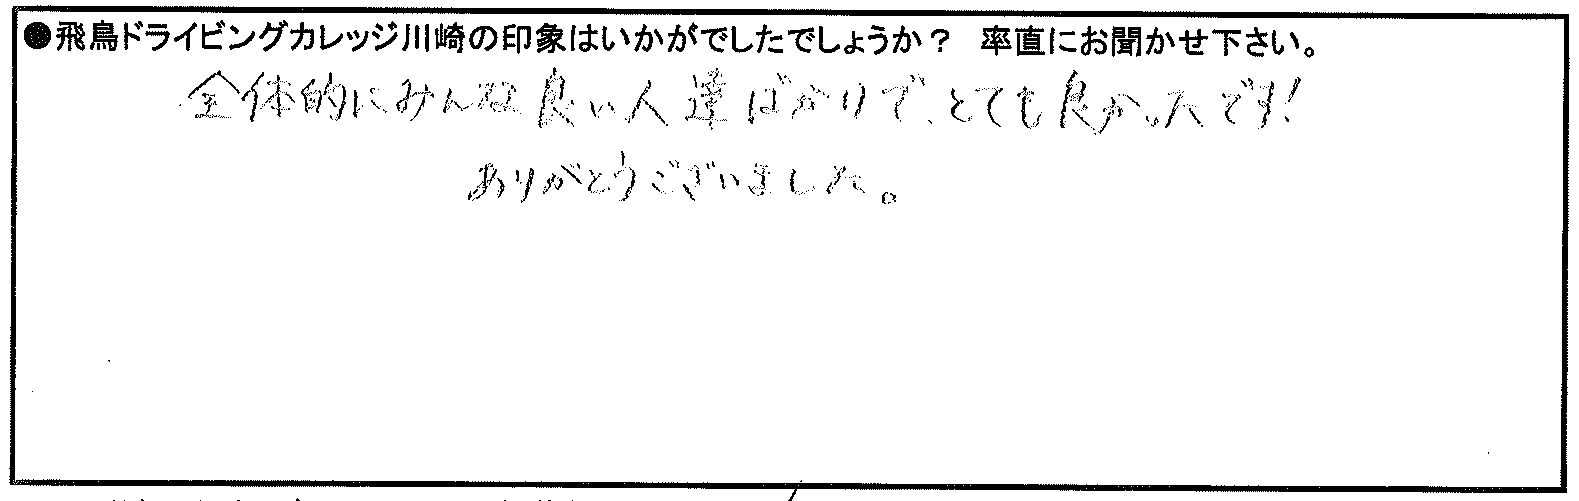 ●飛鳥ドライビングカレッジ川崎の印象はいかがでしたでしょうか？　率直にお聞かせ下さい。
全体的にみんな良い人達ばかりで、とても良かったです！
ありがとうございました。